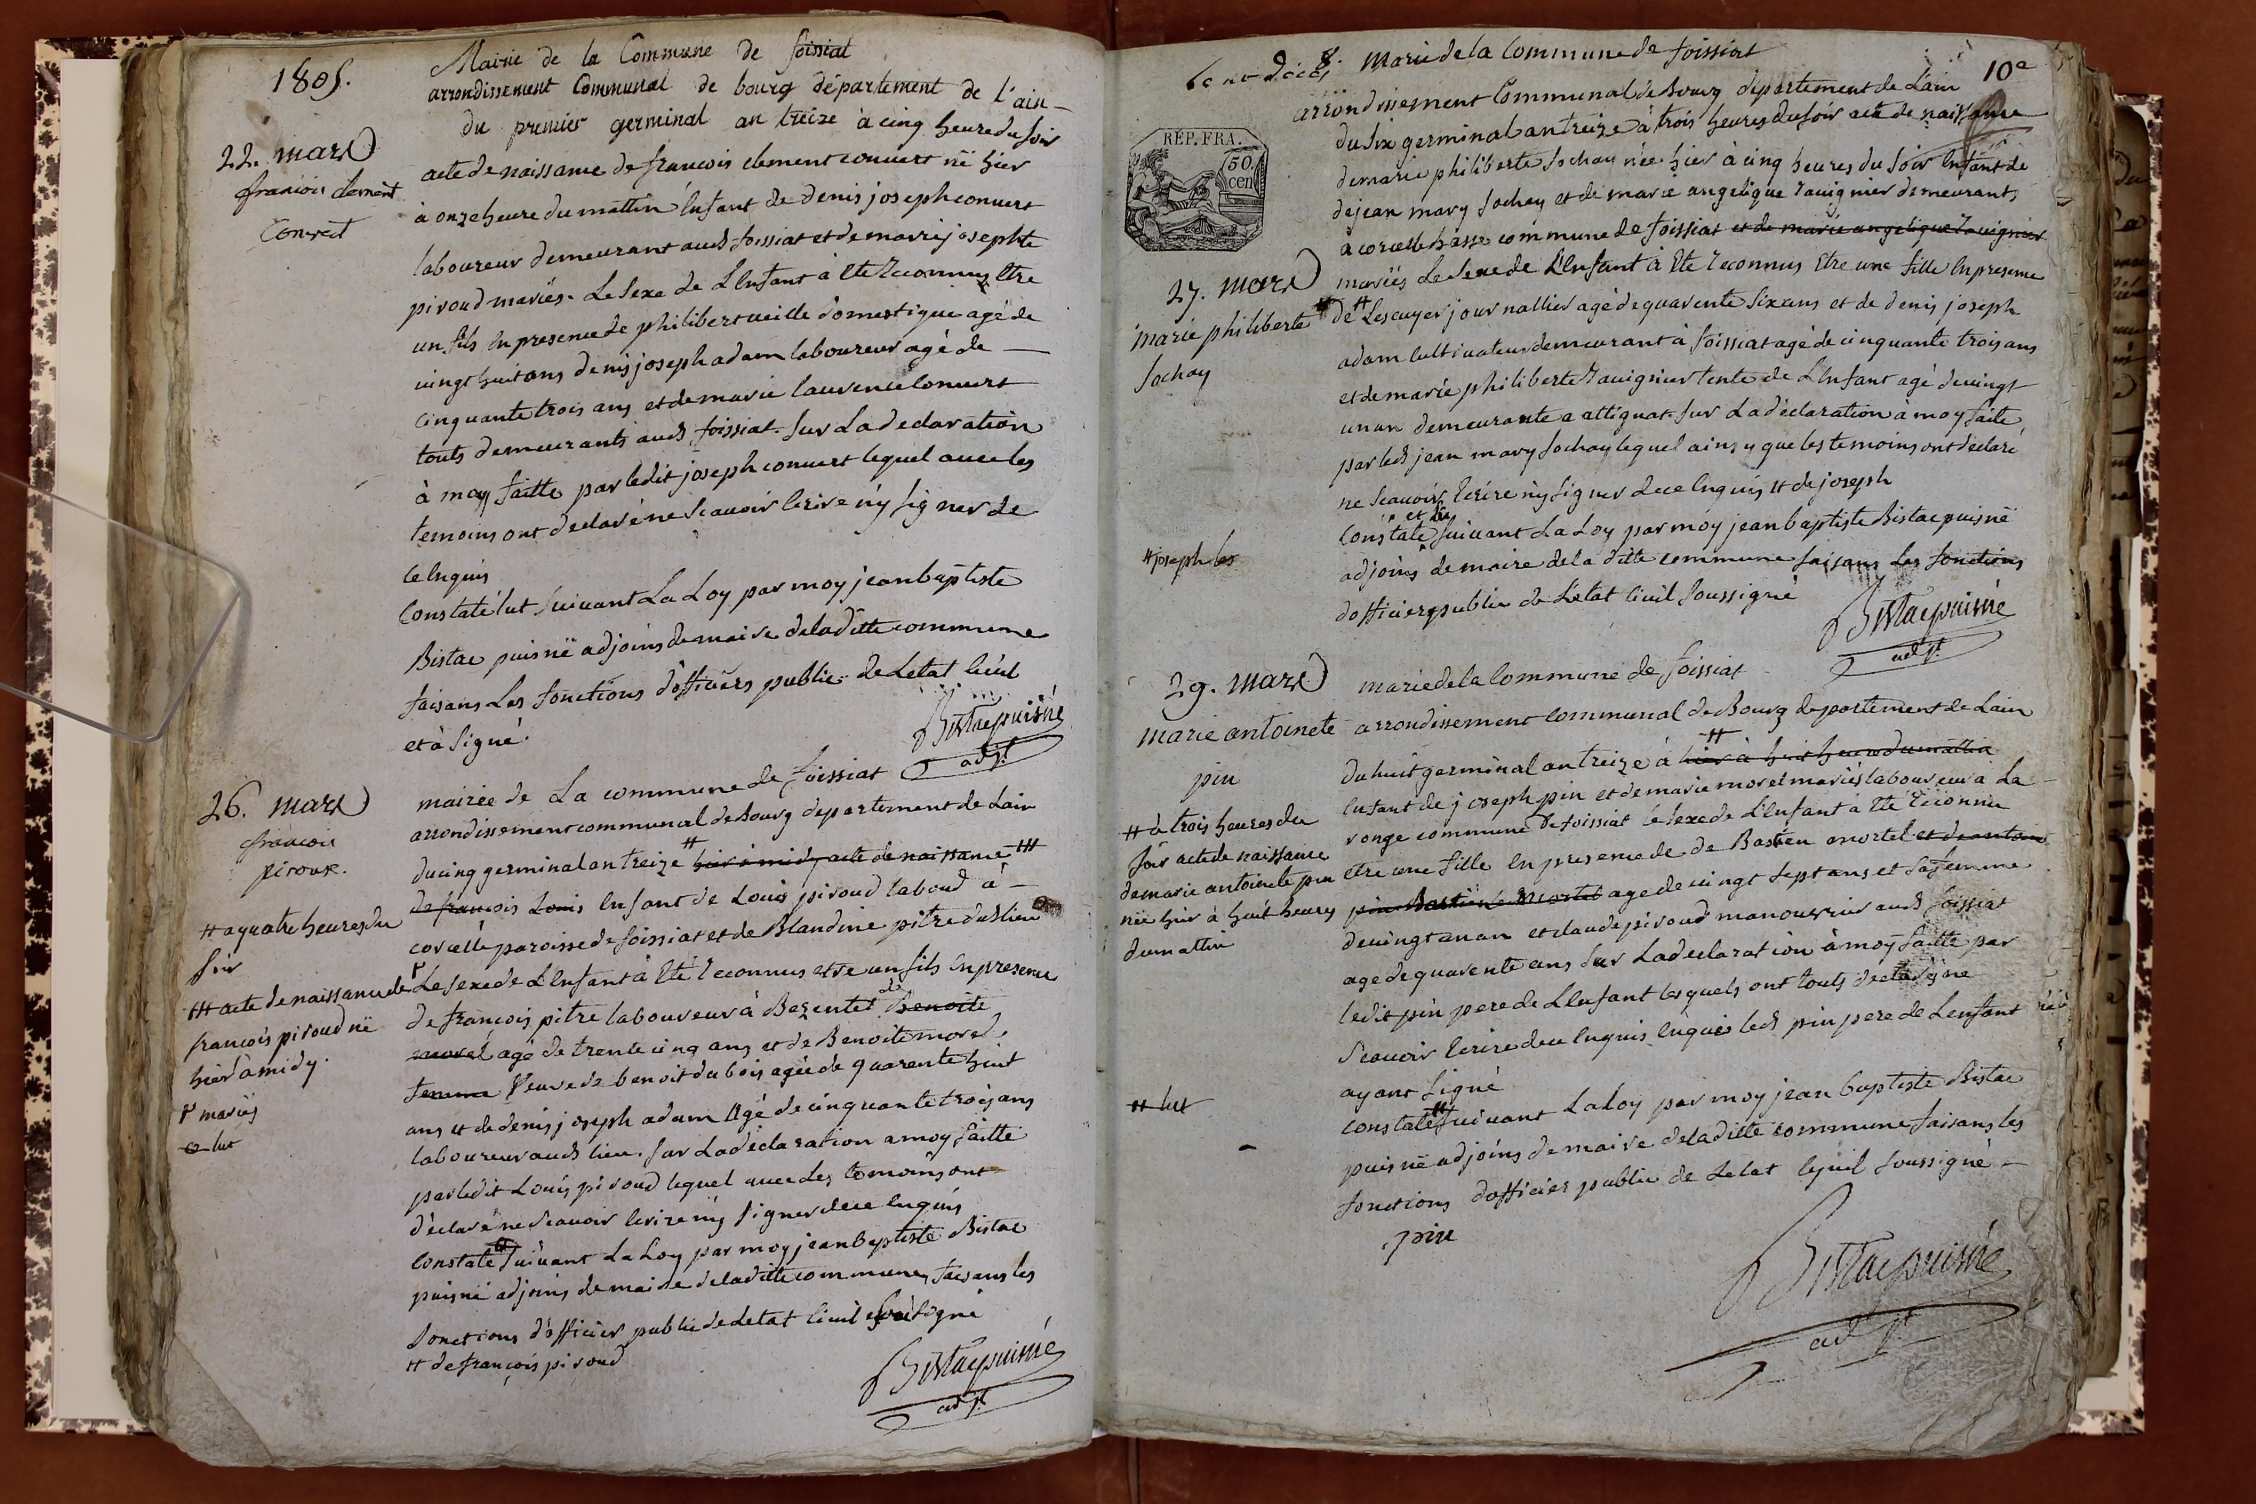 1805.
Mairie de la Commune de foissiat
arrondissement Communal de bourg département de l'ain
du premier germinal an treize à cinq heure du soir
22. mars
francois clement
Convert
acte de naissance de francois clement convert né hier
à onze heure du mattin Enfant de denis joseph convert
laboureur demeurant aud foissiat et de marie josephte
piroud mariés. Le sexe de L'Enfant à Eté Reconnus Etre
un fils En presence de philibert veille domestique agé de
vingt huit ans denis joseph adam laboureur agé de
cinquante trois ans et de marie laurence Convert
touts demeurants aud foissiat. sur La declaration
à moy faitte par ledit joseph convert lequel avec les
temoins ont declaré ne scavoir Ecrire n'y signer de
ce Enquis
Constaté lut suivant La Loy par moy jean baptiste
Bistac puisné adjoins de maire de la ditte commune
faisans Les fonctions d'officiers public de Letat Civil
et à signé.
Bistac puisné
adjt
26. mars
francois
piroux.
mairée de La commune de foissiat
arrondissement communal de Bourg departement de Lain
du cinq germinal an treize # hier à midy acte de naissance ##
de francois Louis Enfant de Louis piroud laboud à
corcelle paroisse de foissiat et de Blandine pitre dud lieu
# a quatre heures du
soir
## acte de naissance de
francois piroud né
hier à midy.
mariés
lut
Le sexe de L'Enfant à Eté Reconnus etre un fils En presence
de francois pitre laboureur à Bezentet de Benoite
morel agé de trente cinq ans et de Benoite morel
femme Veuve de benoit dubois agée de quarente huit
ans et de denis joseph adam agé de cinquante trois ans
laboureur aud lieu. sur La declaration a moy faitte
par ledit Louis piroud lequel avec Les temoins ont
déclaré ne scavoir Ecrire n'y signer de ce Enquis
constaté suivant La Loy par moy jean baptiste Bistac
puisné adjoins de maire de la ditte commune, faisans les
fonctions d'officier public de Letat Civil soussigné
# de francois piroud
Bistac puisné
adjt
8. Marie de la Commune de foissiat
10e
arrondissement Communal de Bourg departement de Lain
du six germinal an treize à trois heures du soir acte de naissance
REP. FRA.
50
cen
de marie philiberte Sochay née hier à cinq heures du soir Enfant de
de jean mary Sochay et de marie angelique Ravignier demeurants
à corcelle basse commune de foissiat et de marie angelique Ravignier
27. mars
marie philiberte
Sochay
mariés Le sexe de L'Enfant à Eté Reconnus Etre une fille En presence
de # Lescuyer journallier agé de quarente six ans et de denis joseph
adam Cultivateur demeurant à foissiat agé de cinquante trois ans
et de marie philiberte Ravignier tente de L'Enfant agé de vingt
un an demeurante a attignat. sur La déclaration à moy faite
par led jean mary Sochay lequel ainsy que les temoins ont declaré
ne scavoir Ecrire n'y signer de ce Enquis # de joseph
# joseph les
Constaté et lu suivant La Loy par moy jean baptiste Bistac puisné
adjoins de maire de la ditte commune faisans Les fonctions
d'officiers public de L'etat Civil soussigné
Bistac puisné
adjt
29. mars
marie antoinete
pin
marie de la Commune de foissiat
arrondissement communal de Bourg departement de Lain
du huit germinal an treize à # hier à huit heures du mattin
Enfant de joseph pin et de marie morel mariés laboureur à La
ronge commune de foissiat le sexe de L'Enfant a Eté Reconnu
# à trois heures du
soir acte de naissance
de marie antoinete pin
née hier à huit heures
du mattin
etre une fille En presence de de Bastien mortel et de antoine
pin Bastien Mortel agé de vingt sept ans et sa femme
de vingt an an et claude piroud manouvrier aud foissiat
agé de quarente ans sur La declaration à moy faitte par
ledit pin pere de L'Enfant lesquels ont touts declaré ne
scavoir Ecrire de ce Enquis Enquis led pin pere de Lenfant
ayant signé
# lut
constaté # suivant La Loy par moy jean baptiste Bistac
puisné adjoins de maire de la ditte commune faisans les
fonctions d'officier public de Letat Civil soussigné
pin
Bistac puisné
adjt